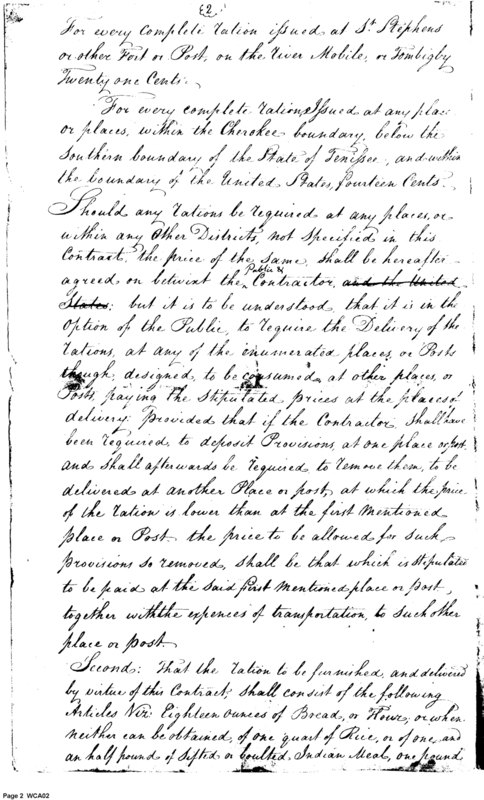 2
For every complete ration issued at St. Stephens
or other Fort or Post, on the River Mobile, or Tombigby
Twenty one Cents.
For every complete rations Issued at any place
or places, within the Cherokee boundary, below the
Southern boundary of the State of Tenissee, and within
the boundary of the United States, fourteen Cents.
Should any rations be required at any places, or
within any other Districts, not specified in this
Contract, the price of the same shall be hereafter
agreed on betwixt the Public & Contractor, and the United
States; but it is to be understood, that it is in the
option of the Public, to require the Delivery of the
rations, at any of the enumerated places, or Posts
though, designed, to be consumed, at other places, or
Posts, paying the stipulated prices at the places of
delivery; Provided that if the Contractor, shall have
been required, to deposit Provisions, at one place or post
and shall afterwards be required to remove them, to be
delivered at another Place or post, at which the price
of the ration is lower than at the first mentioned
place or Post the price to be allowed for such
provisions so removed, shall be that which is stipulated
to be paid at the said first mentioned place or post,
together with the expences of transportation, to such other
place or post.
Second: That the ration to be furnished, and delivered
by virtue of this Contract, shall consist of the following
Articles Viz: Eighteen ounces of Bread, or Flour, or when
neither can be obtained, of one quart of Rice, or of one and
an half pound of sifted or boulted Indian Meal, one pound
Page 2 WCA02